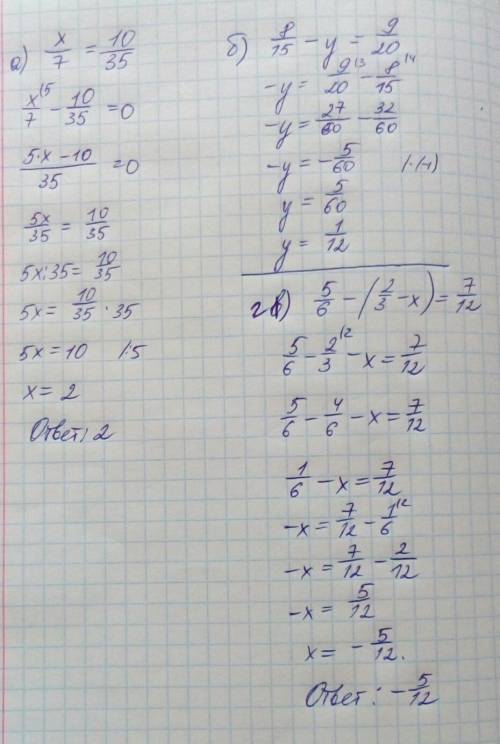 а) x/7 = 10/35
x/7 ⁽⁵ - 10/35 = 0
(5·x - 10)/35 = 0
5x/35 = 10/35
5x:35 = 10/35
5x = 10/35 · 35
5x = 10 |:5
x = 2
Ответ: 2
б) 8/15 - y = 9/20
-y = 9/20 ⁽³ - 8/15 ⁽⁴
-y = 27/60 - 32/60
-y = -5/60 |·(-1)
y = 5/60
y = 1/12
г) 5/6 - (2/3 - x) = 7/12
5/6 - 2/3 ⁽² - x = 7/12
5/6 - 4/6 - x = 7/12
1/6 - x = 7/12
-x = 7/12 - 1/6 ⁽²
-x = 7/12 - 2/12
-x = 5/12
x = - 5/12.
Ответ: - 5/12